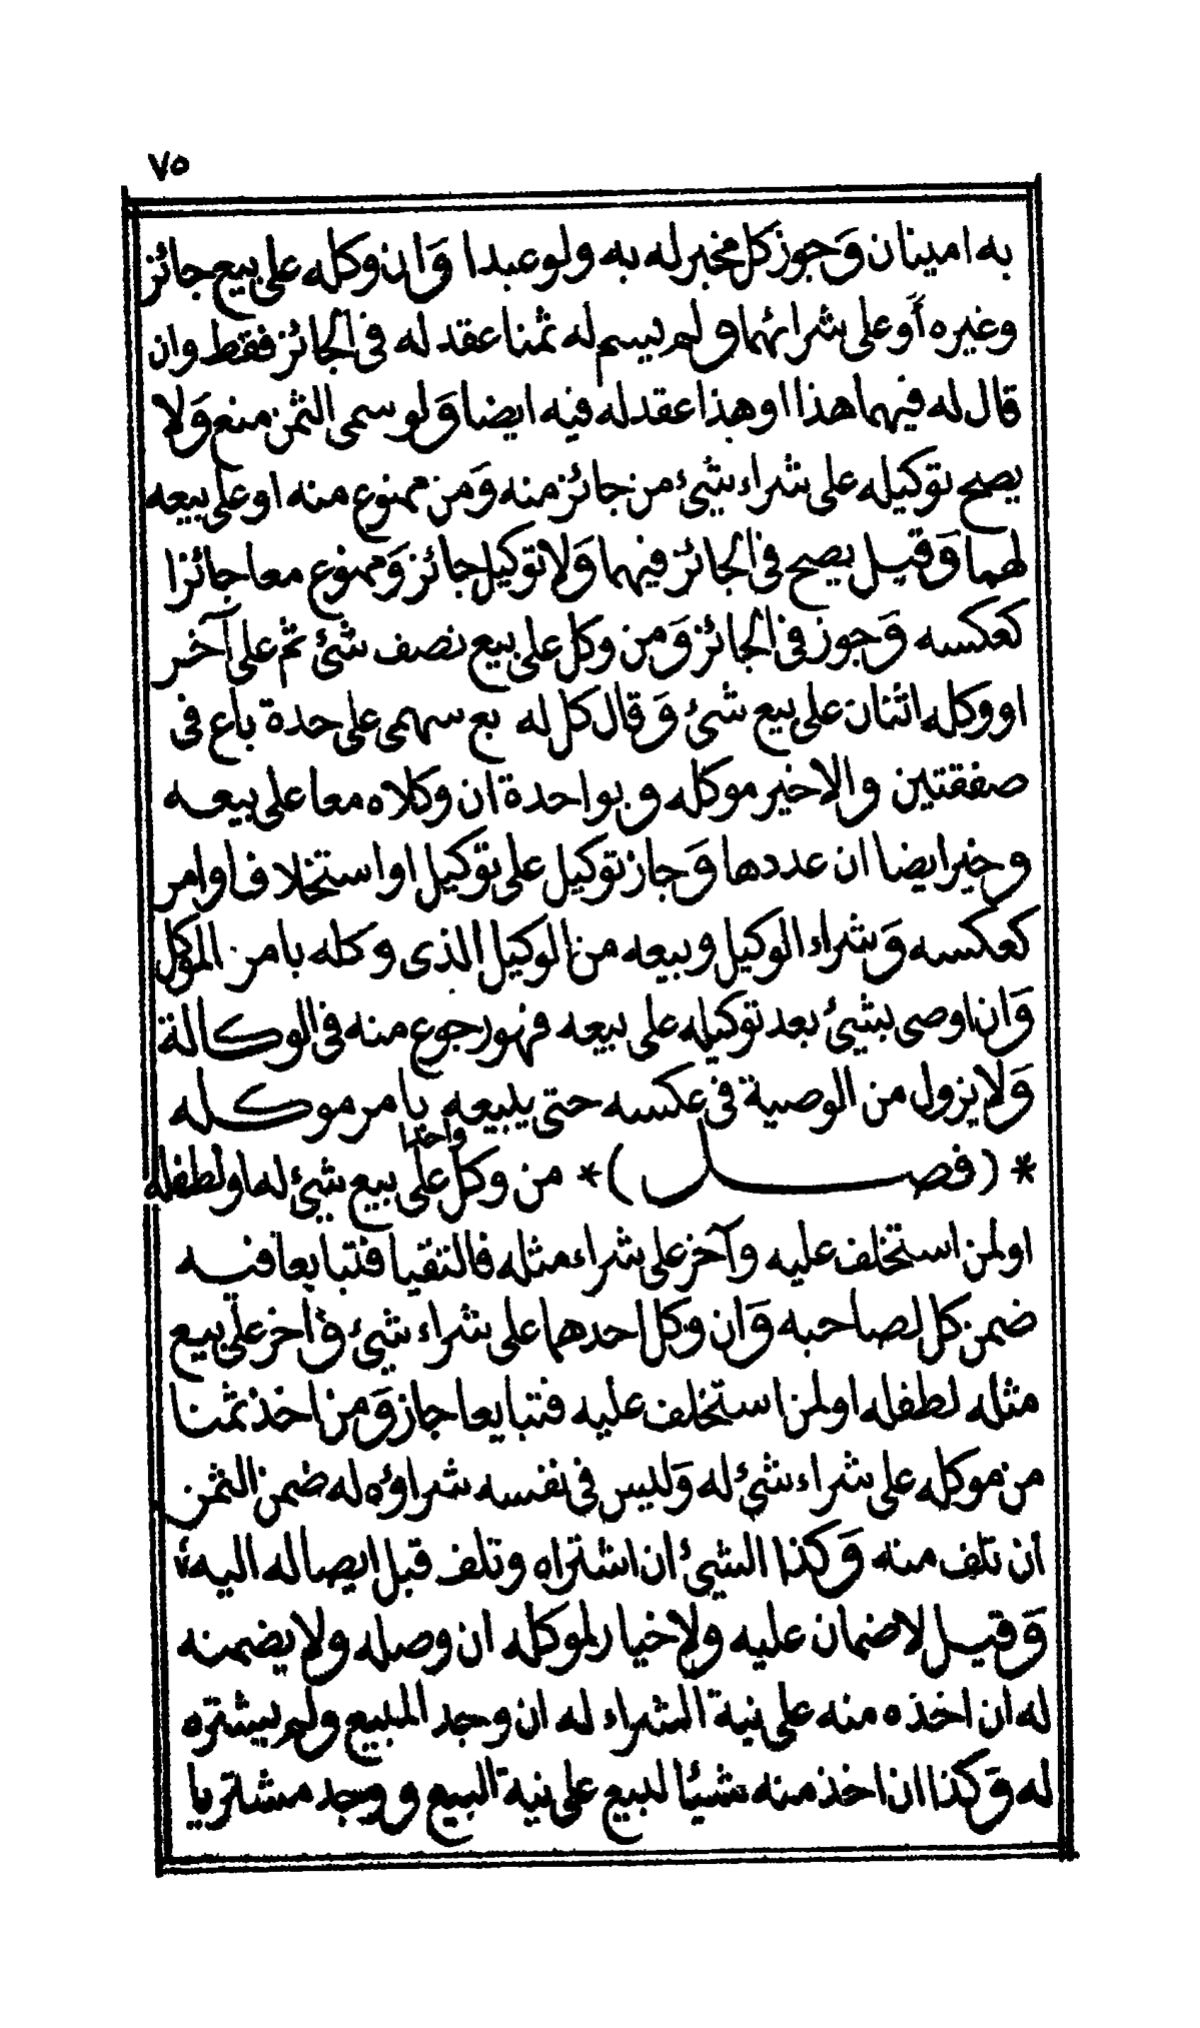 ٧٥
به امينان وَجوز كل مخبر له به ولو عبدا وَان وكله على بيع جائز
وغيره أَو على شرائهما ولم يسم له ثمنا عقد له فى الجائز فقط وان
قال له فيهما هذا او هذا عقد له فيه ايضا وَلو سمى الثمن منع وَلا
يصح توكيله على شراء شئ من جائز منه وَمن ممنوع منه او على بيعه
لهما وَقيل يصح فى الجائز فيهما وَلا توكيل جائز وَممنوع معا جائزا
كعكسه وَجوز فى الجائز وَمن وكل على بيع نصف شئ ثم على آخر
او وكله اثنان على بيع شئ وَقال كل له بع سهمى على حدة باع فى
صفقتين والاخير موكله وبواحدة ان وكلاه معا على بيعه
وخير ايضا ان عددها وَجاز توكيل على توكيل او استخلاف او امر
كعكسه وَشراء الوكيل وبيعه من الوكيل الذى وكله بامر الموكل
وَان اوصى بشئ بعد توكيله على بيعه فهو رجوع منه فى الوكالة
وَلا يزول من الوصية فى عكسه حتى يبيعه بامر موكله
* (فصل) * من وكل واحدا على بيع شئ له او لطفله
او لمن استخلف عليه وآخر على شراء مثله فالتقيا فتبايعا فيه
ضمن كل لصاحبه وَان وكل احدهما على شراء شئ وَآخر على بيع
مثله لطفله او لمن استخلف عليه فتبايعا جاز وَمن اخذ ثمنا
من موكله على شراء شئ له وَليس فى نفسه شراؤه له ضمن الثمن
ان تلف منه وَكذا الشئ ان اشتراه وتلف قبل ايصاله اليه
وَقيل لا ضمان عليه ولا خيار لموكله ان وصله ولا يضمنه
له ان اخذه منه على نية الشراء له ان وجد المبيع ولم يشتره
له وَكذا ان اخذ منه شيئا لبيع على نية البيع ووجد مشتريا